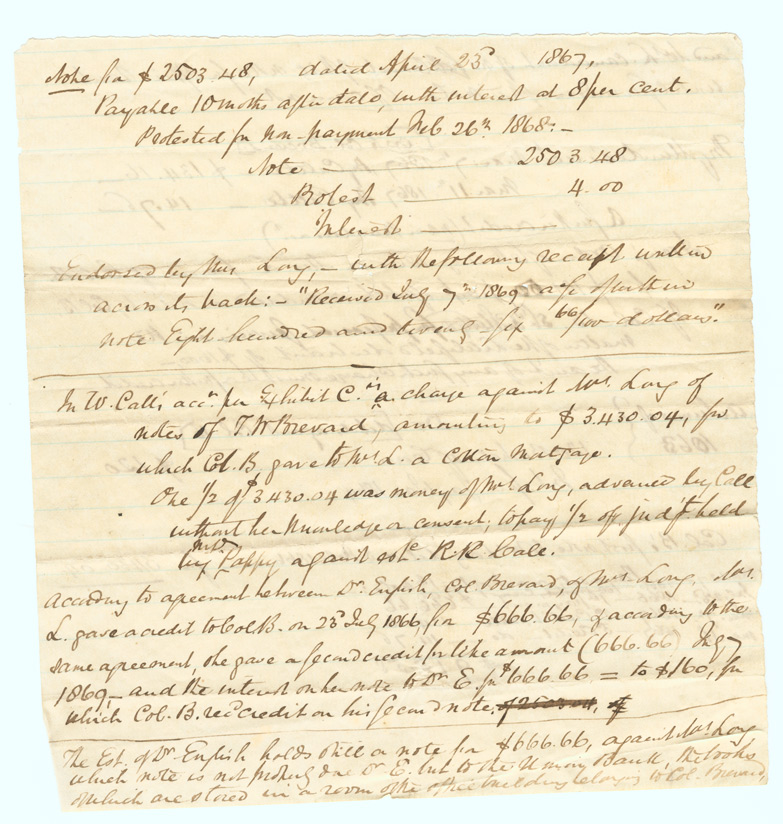 Note for $2503.48, dated April 23d 1867,
Payable 10 moths after date, with interest at 8 per cent.
Protested for non-payment Feb 26th 1868:-
Note 2503.48
Protest 4.00
Interest
Endorsed by Mrs Long,- with the following receipt written
across its back:- "Received July 7th 1869 a/c of within
note Eight hundred and twenty-six 66/100 dollars."
In W. Call's accn per Exhibit C. is a charge against Mrs. Long of
notes of T.W Brevard, amounting to $3.430.04, for
which Col. B. gave to Mrs L. a Cotton Mortgage.
One 1/2 of $3.430.04 was money of Mrs Long, advanced by Call
without her knowledge or consent, to pay 1/2 of judgt held
by Mrs. Pappy against R.K. Call.
According to agreement between Dr. English, Col. Brevard, & Mrs. Long, Mrs.
L. gave a credit to Col B. on 23d July 1866, for $666.66, & according to the
same agreement, she gave a second credit for like amount (666.66) July 7
1869,- and the interest on her note to Dr E. for $666.66 = to $160, for
which Col. B. recd credit on his second note, of 2503.04, of
The Est. of Dr. English holds still a note for $666.66, against Mrs Long,
which note is not properly due Dr E. but to the Union Bank, the books
of which are stored in a room of the office building belonging to Col. Brevard,